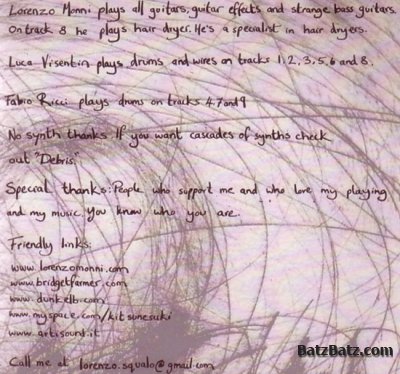 Lorenzo Monni plays all guitars, guitar effects and strange bass guitars.
On track 8 he plays hair dryer. He's a specialist in hair dryers.
Luca Visentin plays drums and wires on tracks 1, 2, 3, 5, 6 and 8.
Fabio Ricci plays drums on tracks 4, 7 and 9
No synth thanks. If you want cascades of synths check
out "Debris".
Special thanks: People who support me and who love my playing
and my music. You know who you are.
Friendly links:
www.lorenzomonni.com
www.bridgetfarmer.com
www.dunkelbi.com
www.myspace.com/kitsunesuki
www.artisound.it
Call me at lorenzo.squalo@gmail.com
BatzBatz.com